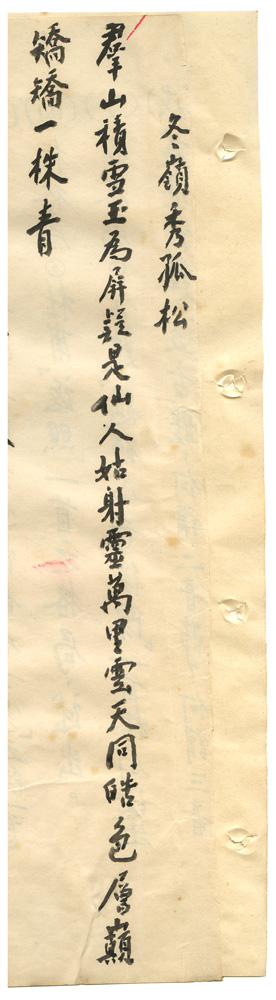 冬嶺秀孤松
羣山積雪玉為屏疑是仙人姑射靈萬里雲天同皓色層巔
矯矯一株青